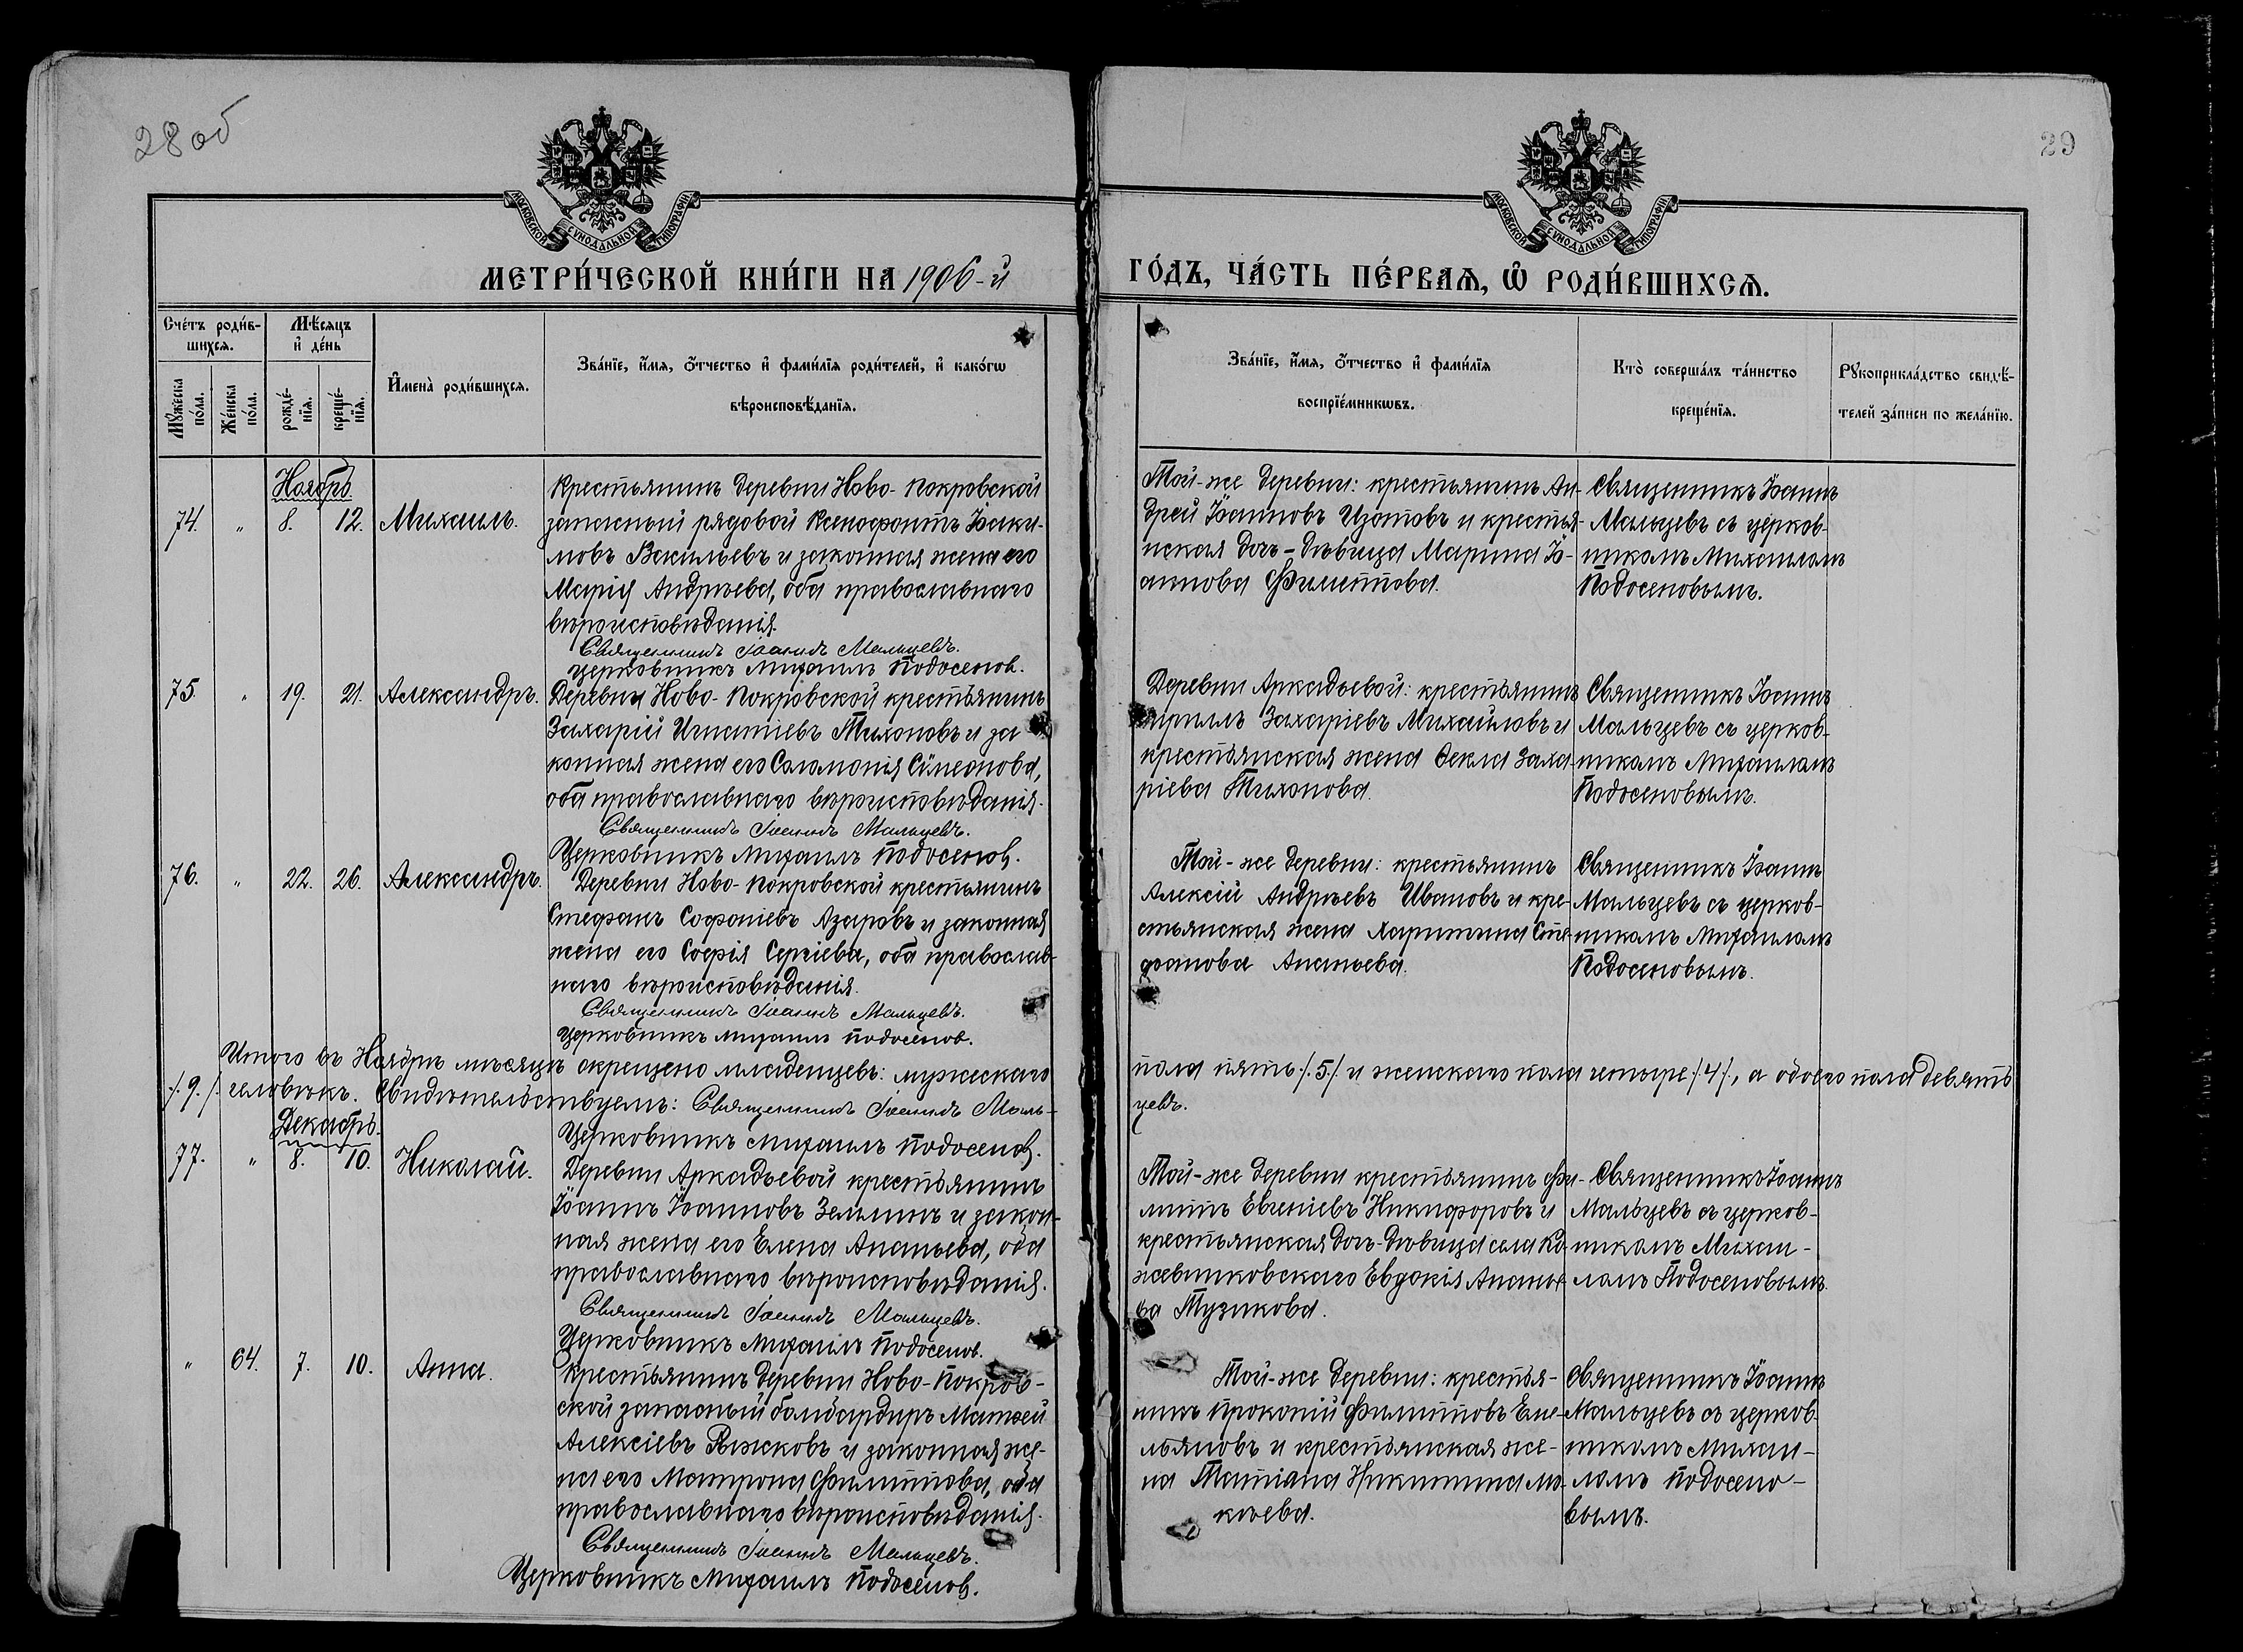 28 об
29
МОСКОВСКОЙ СѴНОДАЛЬНОЙ ТИПОГРАФІИ
МОСКОВСКОЙ СѴНОДАЛЬНОЙ ТИПОГРАФІИ
МЕТРИ́ЧЕСКОЙ КНИ́ГИ НА 1906-й
ГО́ДЪ, ЧА́СТЬ ПЕ́РВАѦ, Ѽ РОДИ́ВШИХСѦ.
Сче́тъ роди́в-
шихсѧ.
Мѣ́сѧцъ
и҆ де́нь
Мꙋ́жеска
по́ла.
Же́нска
по́ла.
рожде́-
нїѧ.
креще́-
нїѧ.
И҆мена̀ роди́вшихсѧ.
Зва́нїе, и҆́мѧ, ѻ҆́тчество и҆ фами́лїѧ роди́телей, и҆ како́гѡ
вѣроисповѣ́данїѧ.
Зва́нїе, и҆́мѧ, ѻ҆́тчество и҆ фами́лїѧ
воспрїе́мникѡвъ.
Кто̀ соверша́лъ та́инство
креще́нїѧ.
Рꙋкоприкла́дство свидѣ́-
телей за́писи по жела́нїю.
Ноябрь
74. " 8. 12. Михаилъ.
Крестьянинъ деревни Ново-Покровской
запасный рядовой Ксенофонтъ Іоаки-
мовъ Васильевъ и законная жена его
Марія Андреева, оба православнаго
вѣроисповѣданія.
Священникъ Іоаннъ Мальцевъ.
Церковникъ Михаилъ Подосенов.
Той-же деревни: крестьянинъ Ан-
дрей Іоанновъ Изотовъ и крестья-
нская дочь-дѣвица Марина Іо-
аннова Филиппова.
Священникъ Іоаннъ
Мальцевъ съ церков-
никомъ Михаиломъ
Подосеновымъ.
75. " 19. 21. Александръ.
Деревни Ново-Покровской крестьянинъ
Захарій Игнатіевъ Тихоновъ и за
конная жена его Соломонія Симеонова,
оба православнаго вѣроисповѣданія.
Священникъ Іоаннъ Мальцевъ.
Церковникъ Михаилъ Подосенов.
Деревни Аркадьевой: крестьянинъ
Кириллъ Захаріевъ Михайловъ и
крестьянская жена Ѳекла Заха-
ріева Тихонова.
Священникъ Іоаннъ
Мальцевъ съ церков-
никомъ Михаиломъ
Подосеновымъ.
76. " 22. 26. Александръ.
Деревни Ново-Покровской крестьянинъ
Стефанъ Софоніевъ Азаровъ и законная
жена его Софія Сергіева, оба православ-
наго вѣроисповѣданія.
Священникъ Іоаннъ Мальцевъ.
Церковникъ Михаилъ Подосенов.
Той-же деревни: крестьянинъ
Алексій Андреевъ Ивановъ и кре-
стьянская жена Харитина Сте-
фанова Ананьева.
Священникъ Іоаннъ
Мальцевъ съ церков-
никомъ Михаиломъ
Подосеновымъ.
Итого въ Ноябрѣ мѣсяцѣ окрещено младенцевъ: мужескаго пола пять /.5./ и женскаго пола четыре /.4/., а обоего пола девять
/.9./ человѣкъ. Свидѣтельствуемъ: Священникъ Іоаннъ Маль-
цевъ.
Церковникъ Михаилъ Подосенов.
Декабрь.
77. " 8. 10. Николай.
Деревни Аркадьевой крестьянинъ
Іоаннъ Іоанновъ Зелынинъ и закон-
ная жена его Елена Ананьева, оба
православнаго вѣроисповѣданія.
Священникъ Іоаннъ Мальцевъ.
Церковникъ Михаилъ Подосенов.
Той-же деревни крестьянинъ Фи-
липпъ Евгеніевъ Никифоровъ и
крестьянская дочь-дѣвица села Ко-
жевниковскаго Евдокія Ананье-
ва Тузикова.
Священникъ Іоаннъ
Мальцевъ съ церков-
никомъ Михаи-
ломъ Подосеновымъ.
" 64. 7. 10. Анна.
Крестьянинъ деревни Ново-Покров-
ской запасный бомбардиръ Матѳей
Алексіевъ Рыжковъ и законная же-
на его Матрона Филиппова, оба
православнаго вѣроисповѣданія.
Священникъ Іоаннъ Мальцевъ.
Церковникъ Михаилъ Подосенов.
Той-же деревни: крестья-
нинъ Прокопій Филипповъ Еме-
льяновъ и крестьянская же-
на Татіана Никитина Мо-
кѣева.
Священникъ Іоаннъ
Мальцевъ съ церков-
никомъ Михаи-
ломъ Подосено-
вымъ.